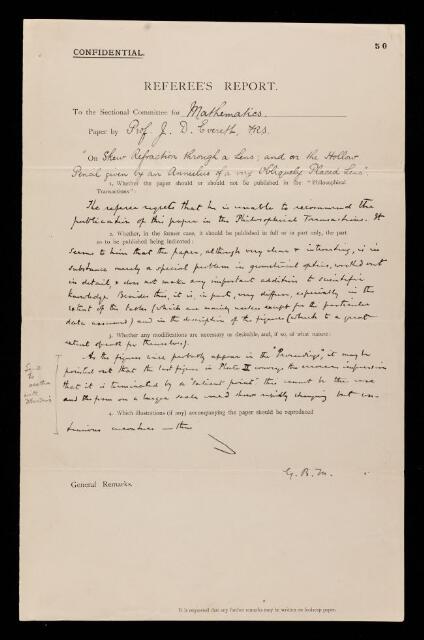 50
CONFIDENTIAL.
REFEREE'S REPORT.
To the Sectional Committee for Mathematics.
Paper by Prof. J. D. Everett, FRS.
"On Skew Refraction through a Lens; and on the Hollow
Pencil given by an Annulus of a very Obliquely Placed Lens".
1. Whether the paper should or should not be published in the "Philosophical
Transactions":
The referee regrets that he is unable to recommend the
publication of this paper in the Philosophical Transactions. It
2. Whether, in the former case, it should be published in full or in part only, the part
so to be published being indicated:
seems to him that the paper, although very clear & interesting, is in
substance merely a special problem in geometrical optics, worked out
in detail, & does not make any important addition to scientific
knowledge. Besides this, it is, in parts, very diffuse, especially in the
extent of the tables (which are mainly useless except for the particular
data assumed) and in the description of the figures (which to a great
3. Whether any modifications are necessary or desirable, and, if so, of what nature:
extent speak for themselves).
As the figures will probably appear in the "Proceedings", it may be
pointed out that the last figure in Plate II conveys the erroneous impression
that it is terminated by a "salient point" this cannot be the case
and the form on a larger scale would show rapidly changing but con-
Send
to
author
with
4. Which illustrations (if any) accompanying the paper should be reproduced
tinuous curvature there
G. B. M.
General Remarks.
It is requested that any further remarks may be written on foolscap paper.